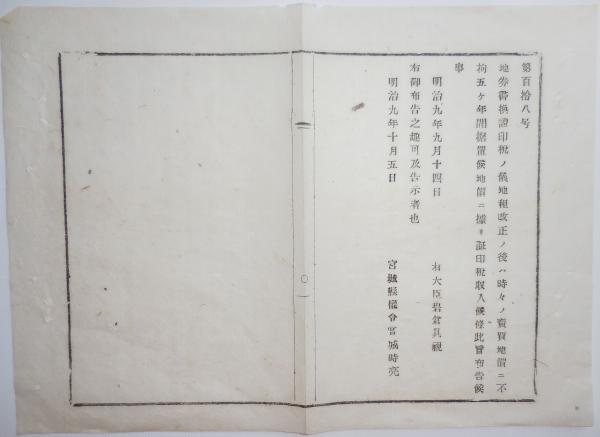 第百拾八号
地券書換證印税ノ儀地租改正ノ後ハ時々ノ賣買地價ニ不
拘五ケ年間据置候地價ニ據リ証印税収入候條此旨布告候
事
明治九年九月十四日　右大臣岩倉具視
右御布告之趣可及告示者也
明治九年十月五日　宮城縣權令宮城時亮